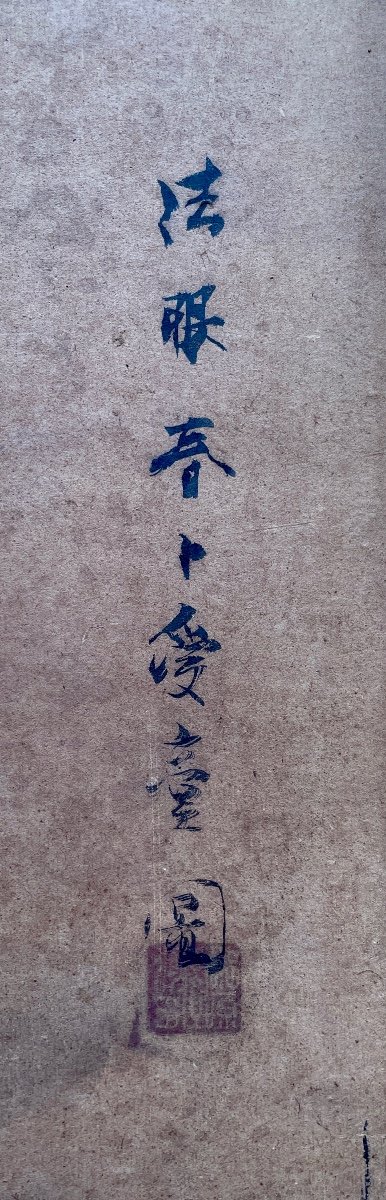 法眼春卜愛董圖